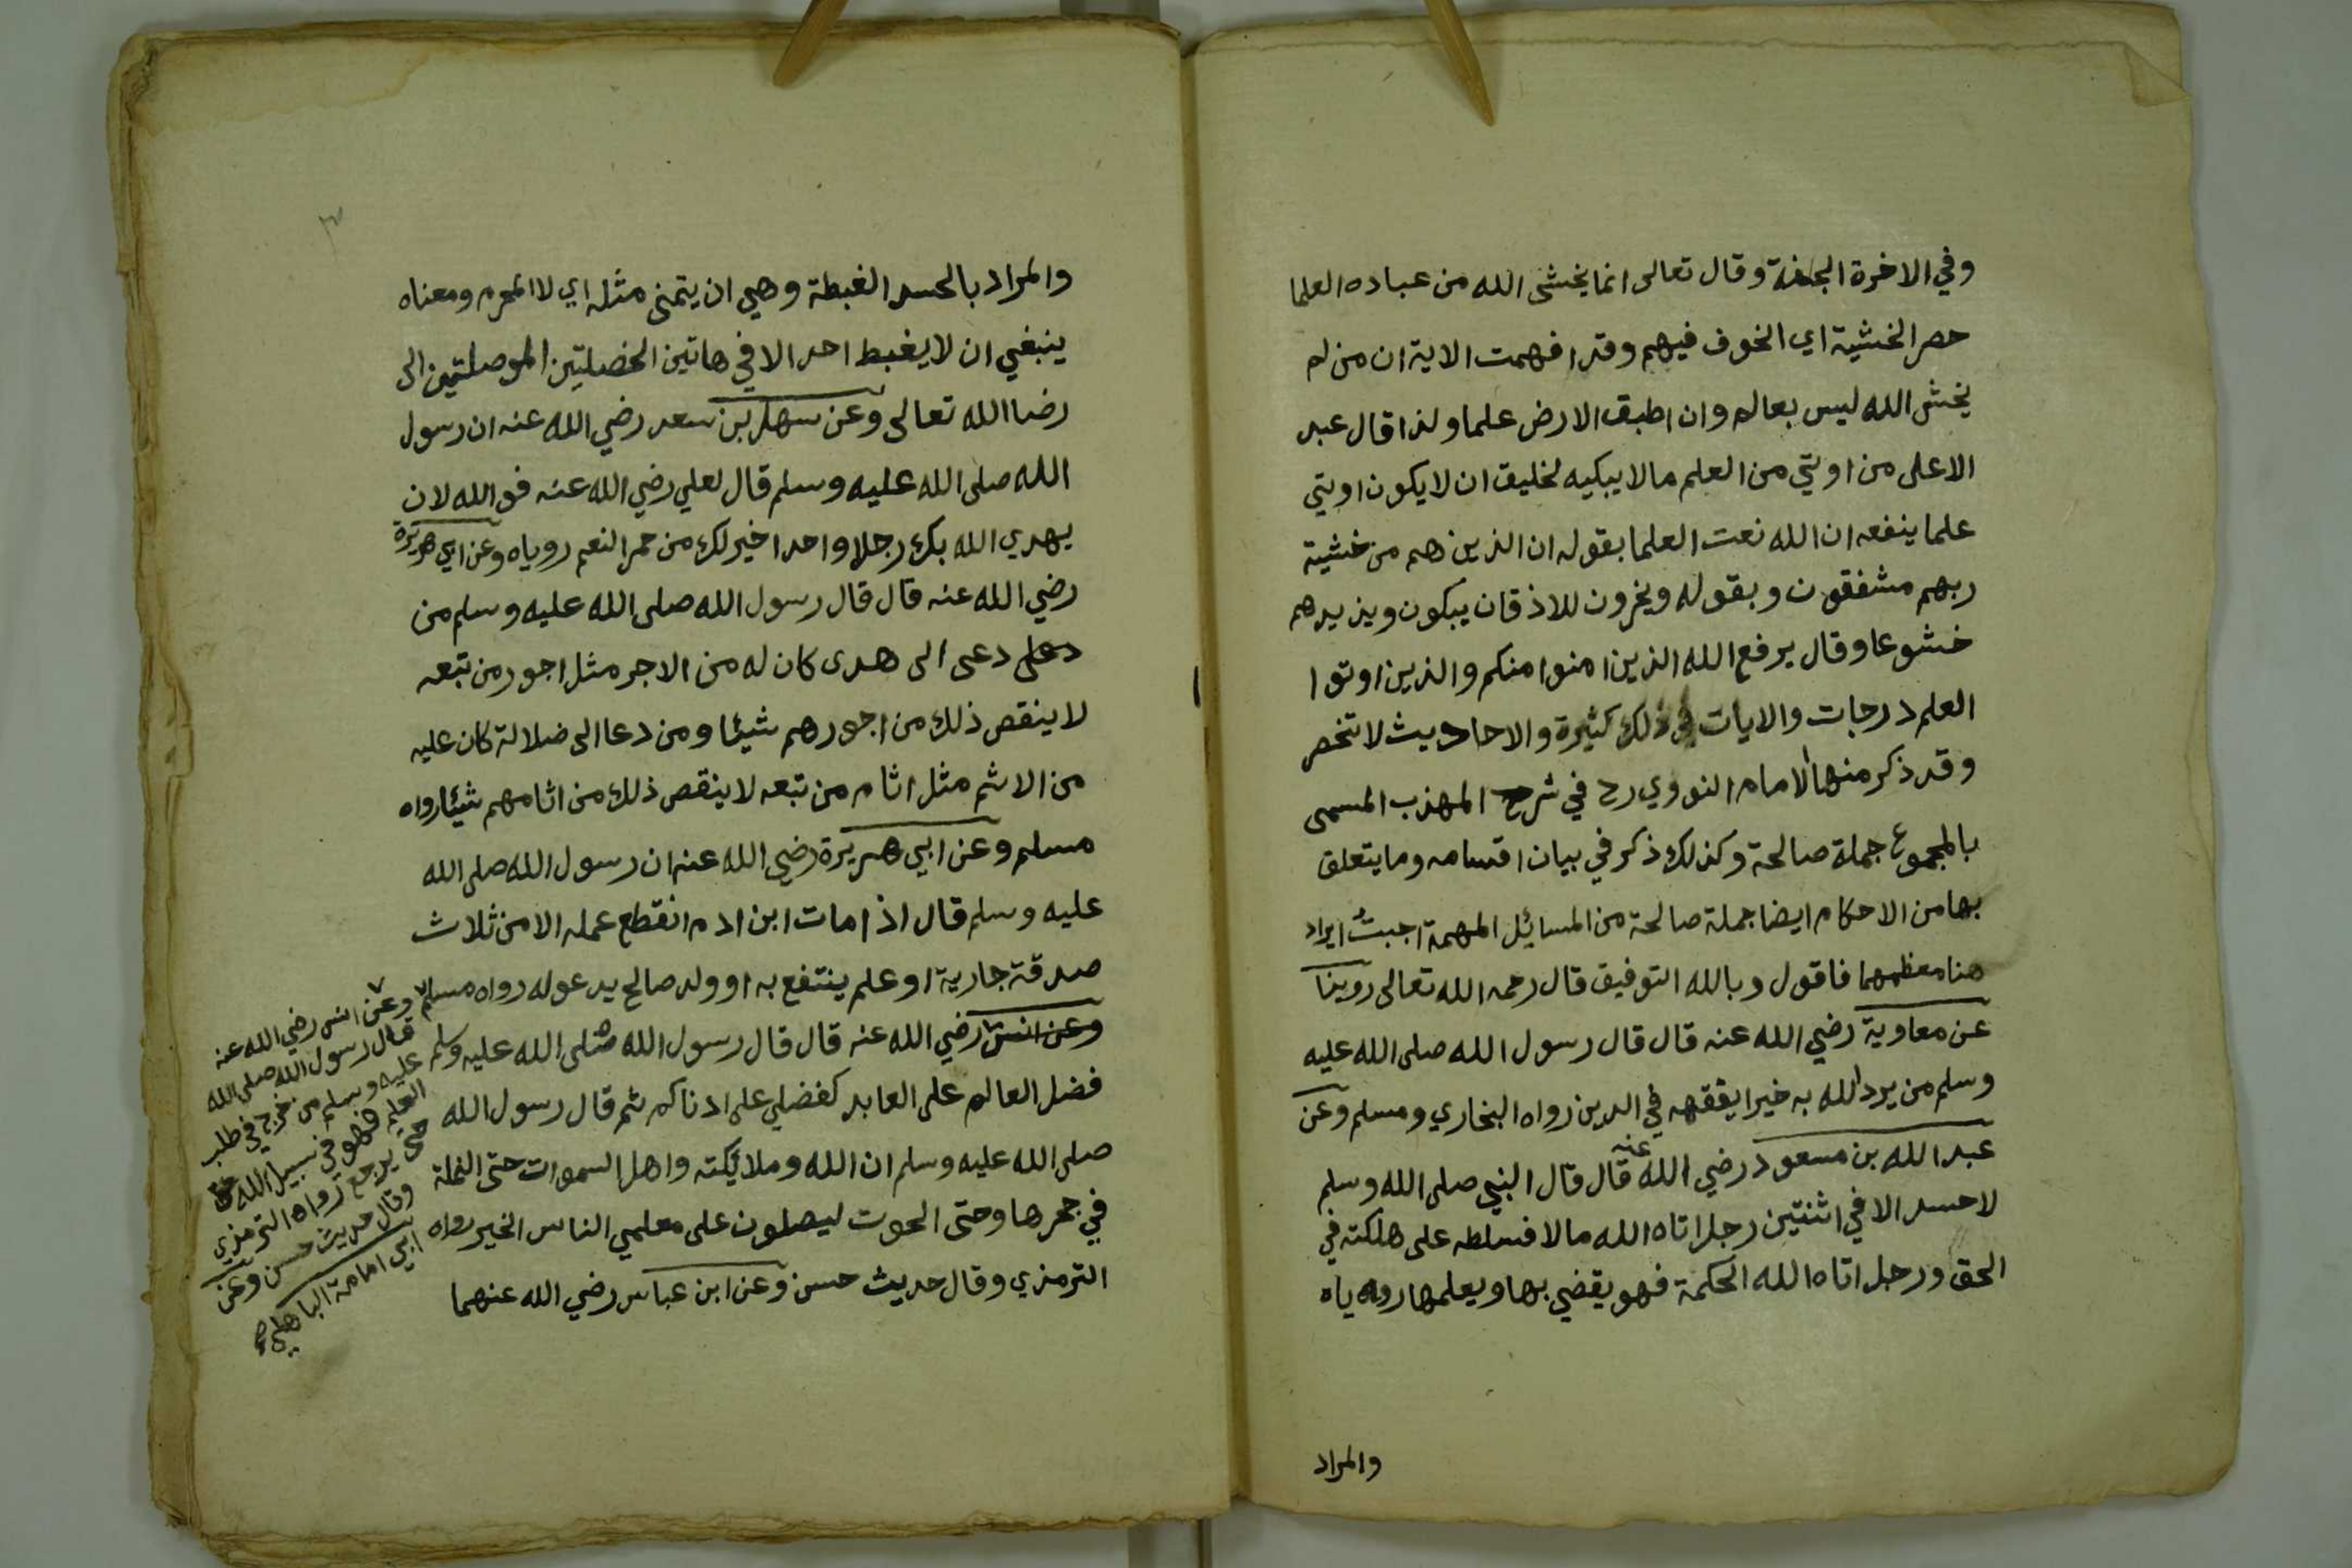 وفي الاخرة الجنة وقال تعالى انما يخشى الله من عباده العلما
حصر الخشية اي الخوف فيهم وقد افهمت الاية ان من لم
يخش الله ليس بعالم وان اطبق الارض علما ولذا قال عبد
الاعلى من اوتي من العلم مالا يبكيه لخليق ان لا يكون اوتي
علما ينفعه ان الله نعت العلما بقوله ان الذين هم من خشية
ربهم مشفقون وبقوله ويخرون للاذقان يبكون ويزيدهم
خشوعا وقال يرفع الله الذين امنوا منكم والذين اوتوا
العلم درجات والايات في ذلك كثيرة والاحاديث لا تنحصر
وقد ذكر منها الامام النووي رح في شرح المهذب المسمى
بالمجموع جملة صالحة وكذلك ذكر في بيان اقسامه وما يتعلق
بها من الاحكام ايضا جملة صالحة من المسائل المهمة اجبتُ ايراد
هنا معظمهما فاقول وبالله التوفيق قال رحمه الله تعالى روينا
عن معاوية رضي الله عنه قال قال رسول الله صلى الله عليه
وسلم من يرد الله به خيرا يفقهه في الدين رواه البخاري ومسلم وعن
عبد الله بن مسعود رضي الله عنه قال قال النبي صلى الله وسلم
لا حسد الا في اثنتين رجل اتاه الله مالا فسلطه على هلكته في
الحق ورجل اتاه الله الحكمة فهو يقضي بها ويعلمها روياه
والمراد
والمراد بالحسد الغبطة وهي ان يتمنى مثله اي لا المحرم ومعناه
ينبغي ان لا يغبط احد الا في هاتين الخصلتين الموصلتين الى
رضا الله تعالى وعن سهل بن سعد رضي الله عنه ان رسول
الله صلى الله عليه وسلم قال لعلي رضي الله عنه فو الله لان
يهدي الله بك رجلا واحدا خير لك من حمر النعم روياه وعن ابي هريرة
رضي الله عنه قال قال رسول الله صلى الله عليه وسلم من
دعى الى هدى كان له من الاجر مثل اجور من تبعه
لا ينقص ذلك من اجورهم شيئا ومن دعا الى ضلالة كان عليه
من الاثم مثل اثام من تبعه لا ينقص ذلك من اثامهم شيئا رواه
مسلم وعن ابي هريرة رضي الله عنه ان رسول الله صلى الله
عليه وسلم قال اذا مات ابن ادم انقطع عمله الا من ثلاث
صدقة جارية او علم ينتفع به او ولد صالح يدعو له رواه مسلم
وعن انس رضي الله عنه قال قال رسول الله صلى الله عليه وسلم
فضل العالم على العابد كفضلي على ادناكم ثم قال رسول الله
صلى الله عليه وسلم ان الله وملائكته واهل السموات حتى النملة
في جحرها وحتى الحوت ليصلون على معلمي الناس الخير رواه
الترمذي وقال حديث حسن وعن ابن عباس رضي الله عنهما
وعن انس رضي الله عنه
قال رسول الله صلى الله
عليه وسلم من خرج في طلب
العلم فهو في سبيل الله
حتى يرجع رواه الترمذي
وقال حديث حسن وعن
ابي امامة الباهلي